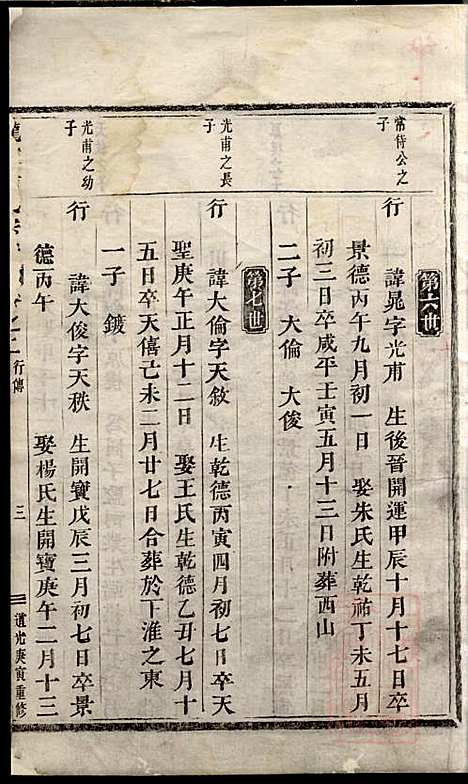 第六世
常侍公之
子
行 諱晁字光甫 生後晉開運甲辰十月十七日卒
景德丙午九月初一日 娶朱氏生乾祐丁未五月
初三日卒咸平壬寅五月十三日附葬西山
二子 大倫 大俊
第七世
光甫之長
子
行 諱大倫字天敘 生乾德丙寅四月初七日卒天
聖庚午正月十二日 娶王氏生乾德乙丑七月十
五日卒天僖己未二月廿七日合葬於下淮之東
一子 鍍
光甫之幼
子
行 諱大俊字天秩 生開寶戊辰三月初七日卒景
德丙午 娶楊氏生開寶庚午二月十三
行傳 三 道光庚寅重修